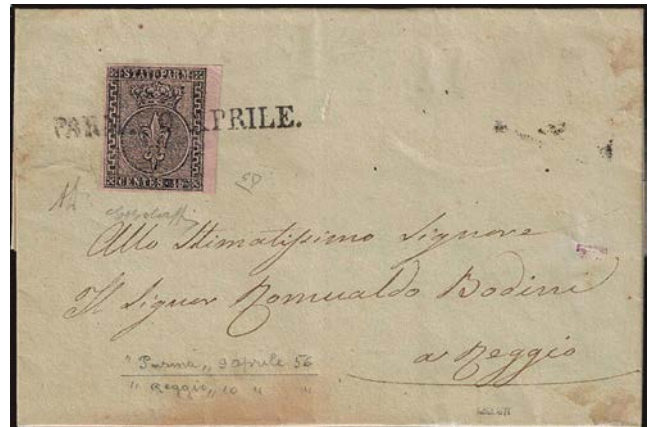 STATI PARM
PARMA 9 APRILE.
CENTES. 15
SD
Allo Stimatissimo Signore
Il Signor Romualdo Bodini
a Reggio
"Parma" 9 aprile 56
"Reggio" 10 " "